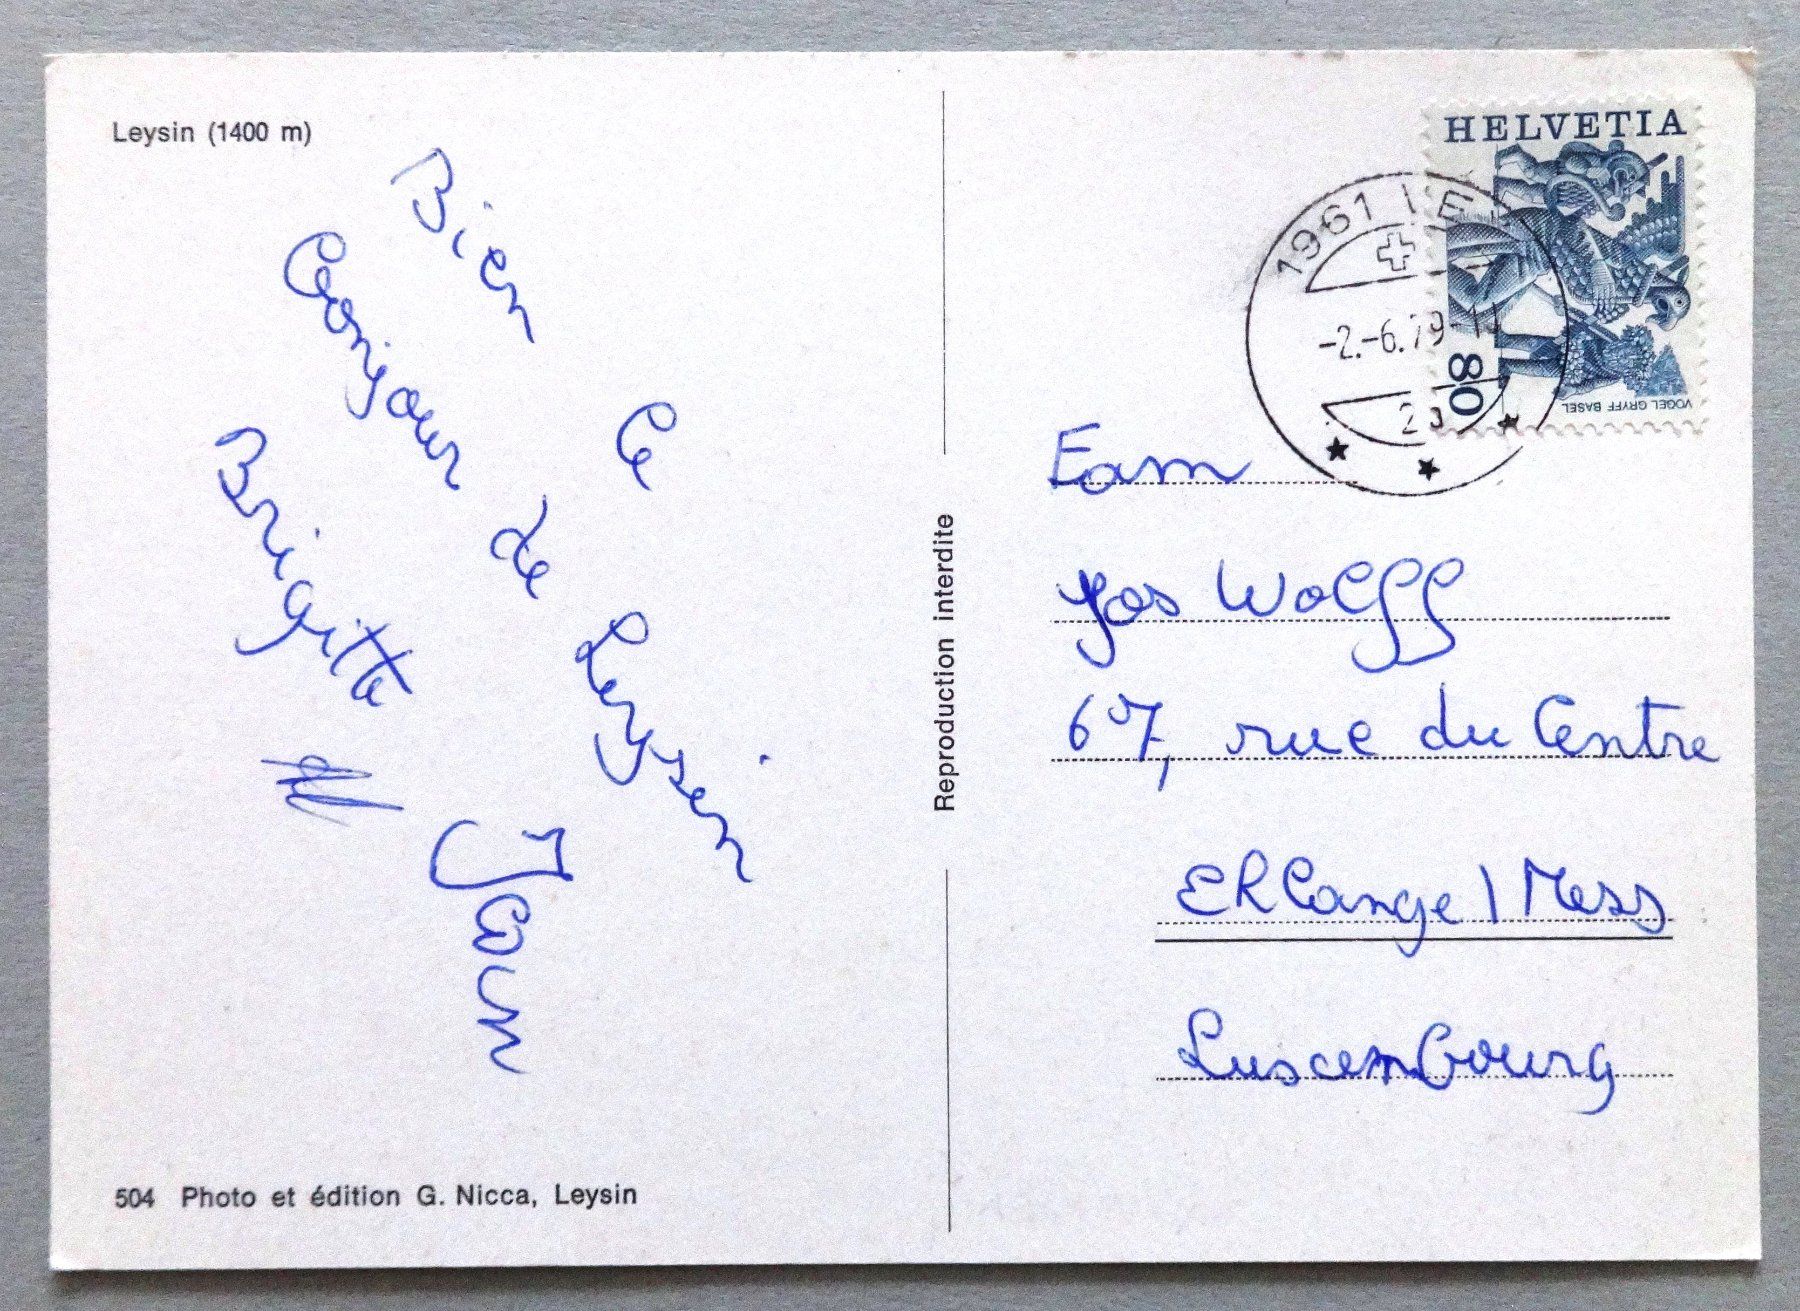 Leysin (1400 m)
Bien le
bonjour de Leysin
Brigitte
504 Photo et édition G. Nicca, Leysin
Reproduction interdite
HELVETIA
80
VOGEL GRYFF BASEL
1961 LE
-2.-6.79-1
Fam
Jos Wolff
67, rue du Centre
Erlange / Mess
Luxembourg